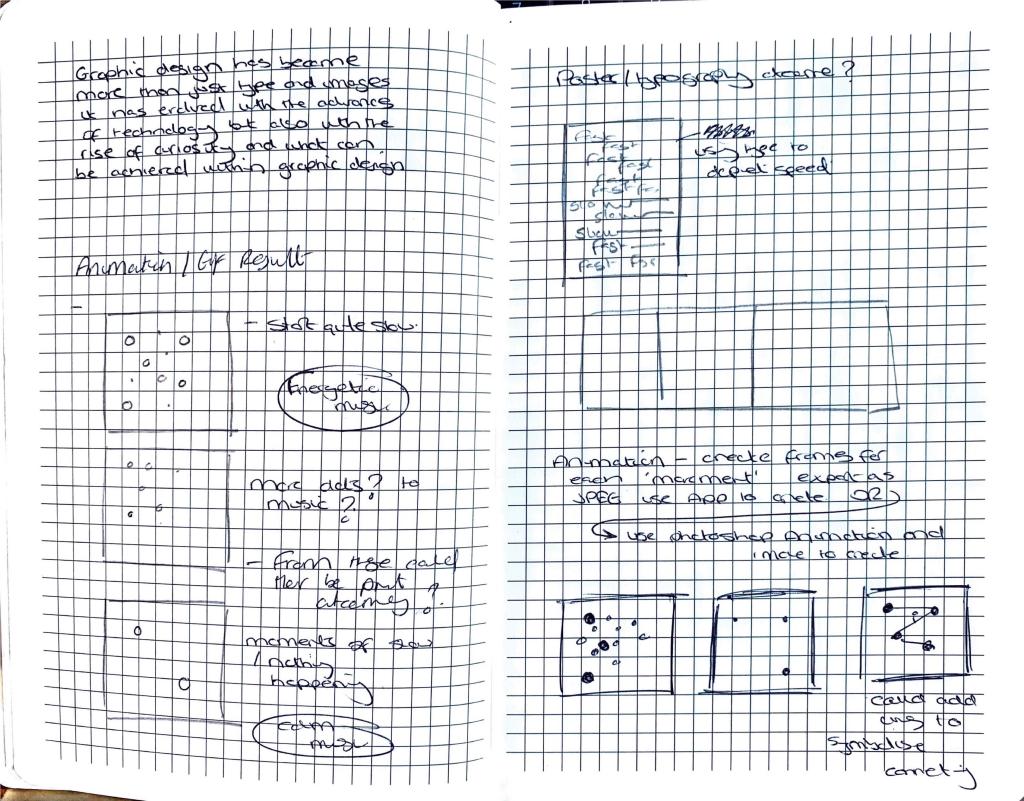 Graphic design has become
more than just type and images
it has evolved with the advances
of technology but also with the
rise of curiosity and what can
be achieved within graphic design
Animation / Gif Result
- start quite slow.
Energetic
music
more dots? to
music?
- from these could
there be print
outcomes?
moments of slow
/ nothing
happening
calm
music
Poster/typography outcome?
fast
fast
fast
fast
fast
fast fas
slow
slow
slow
fast
fast fas
using type to
depict speed
Animation - create frames for
each 'movement' export as
JPEG use App to create OR
use photoshop Animation and
imove to create
could add
to
symbolise